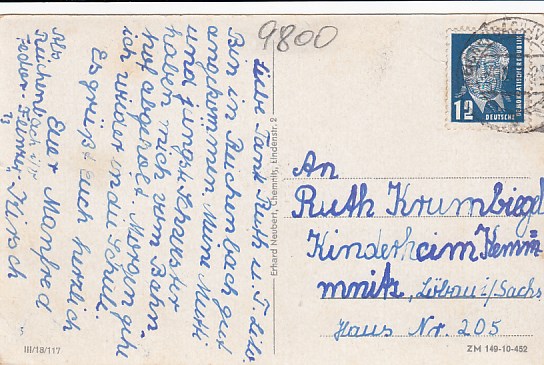 9800
Liebe Tante Ruth u. T. Lilo.
Bin in Reichenbach gut
angkommen. Meine Mutti
und Jungste Schwester
haben mich vom Bahn
hof abgeholt. Morgen gehe
ich wieder in die Schule.
Es grüßt euch herzlich
Euer Manfred
Abs
Reichenbach i/V
Fedor-Flinner
Erhard Neubert, Chemnitz, Lindenstr. 2
12
DEUTSCHE
DEMOKRATISCHE REPUBLIK
An
Ruth Krumbiegel
Kinderheim Kemm=
mnitz, Löbau i/Sachs
Haus Nr. 205
5
III/18/117
ZM 149-10-452